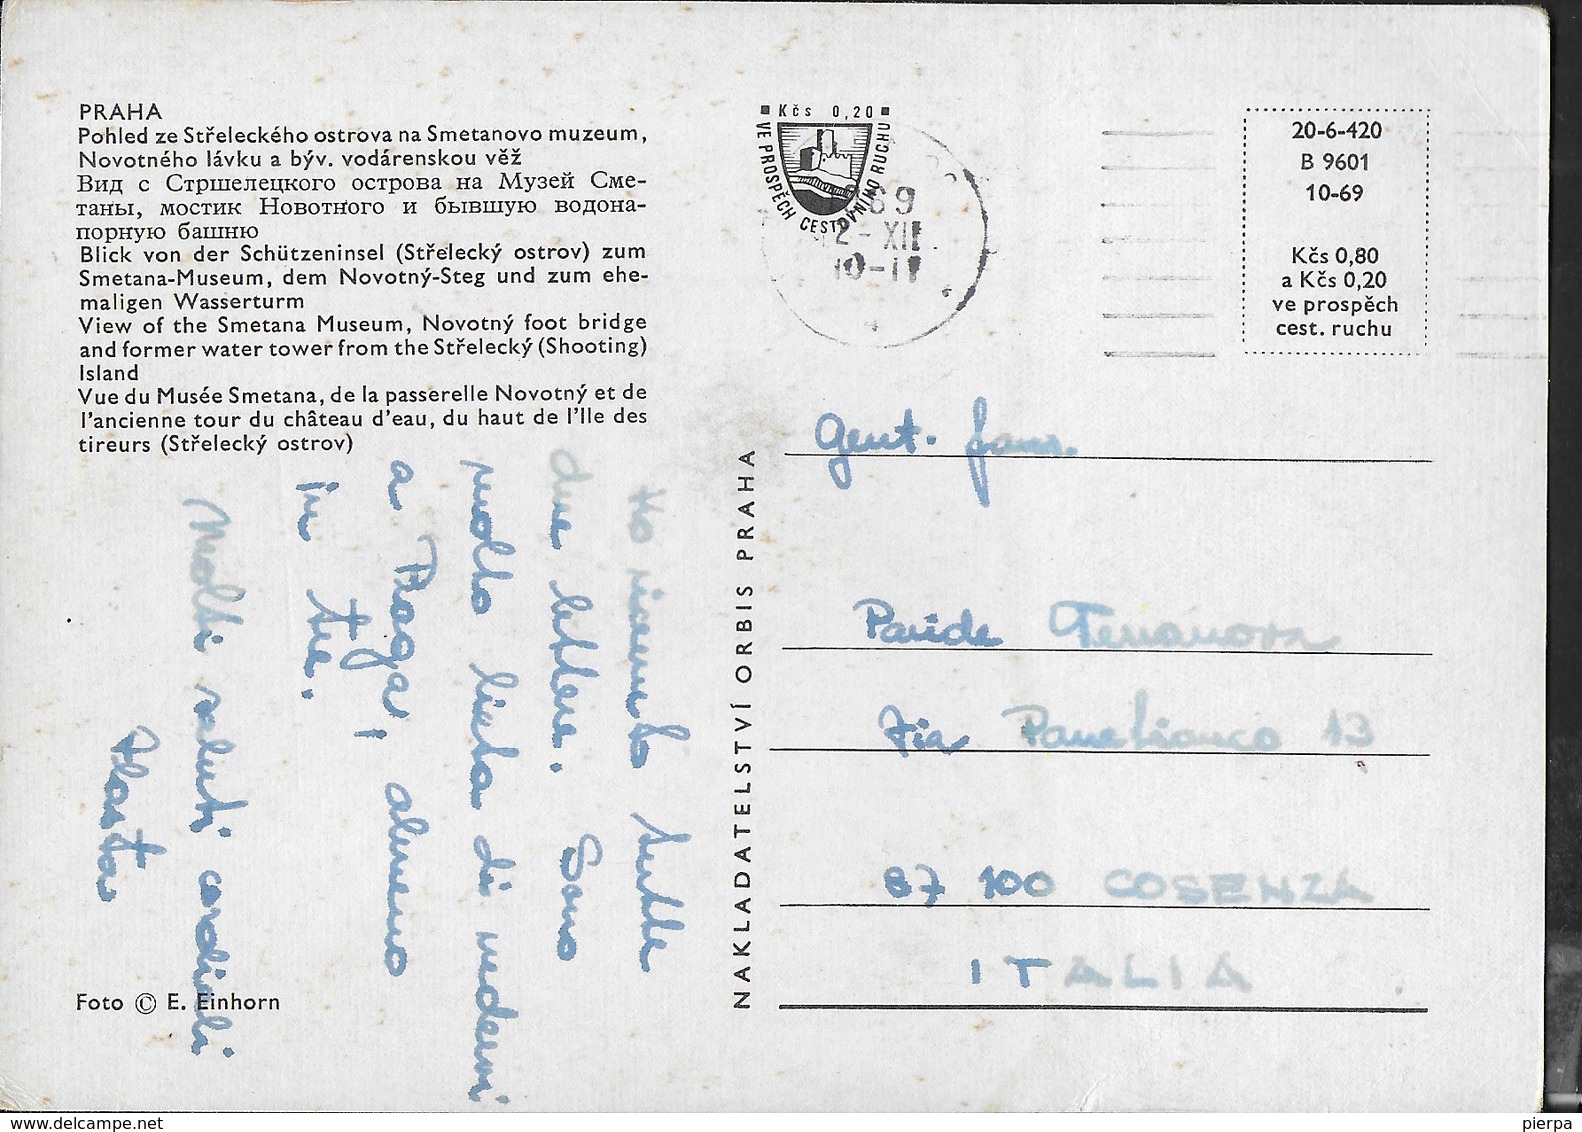 PRAHA
Pohled ze Střeleckého ostrova na Smetanovo muzeum,
Novotného lávku a býv. vodárenskou věž
Вид с Стршелецкого острова на Музей Сме-
таны, мостик Новотного и бывшую водона-
порную башню
Blick von der Schützeninsel (Střelecký ostrov) zum
Smetana-Museum, dem Novotný-Steg und zum ehe-
maligen Wasserturm
View of the Smetana Museum, Novotný foot bridge
and former water tower from the Střelecký (Shooting)
Island
Vue du Musée Smetana, de la passerelle Novotný et de
l'ancienne tour du château d'eau, du haut de l'Ile des
tireurs (Střelecký ostrov)
Ho ricevuto tutte
due lettere. Sono
molto lieta di vedervi
a Praga, almeno
in tre.
Molti saluti cordiali
Vlasta
Foto © E. Einhorn
NAKLADATELSTVÍ ORBIS PRAHA
Kčs 0,20
VE PROSPĚCH CESTOVNÍHO RUCHU
69
2-XII
10-11
4
20-6-420
B 9601
10-69
Kčs 0,80
a Kčs 0,20
ve prospěch
cest. ruchu
Gent. fam.
Paride Terranova
Via Panebianco 13
87 100 COSENZA
ITALIA
delcampe.net
pierpa